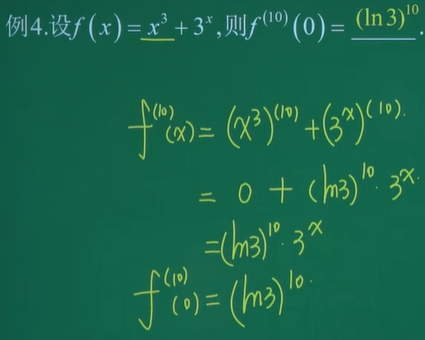 例4.设f(x)=x³+3ˣ,则f⁽¹⁰⁾(0)= (ln3)¹⁰ .
f⁽¹⁰⁾(x)= (x³)⁽¹⁰⁾+(3ˣ)⁽¹⁰⁾.
= 0 + (ln3)¹⁰· 3ˣ.
=(ln3)¹⁰· 3ˣ
f⁽¹⁰⁾(0)= (ln3)¹⁰.